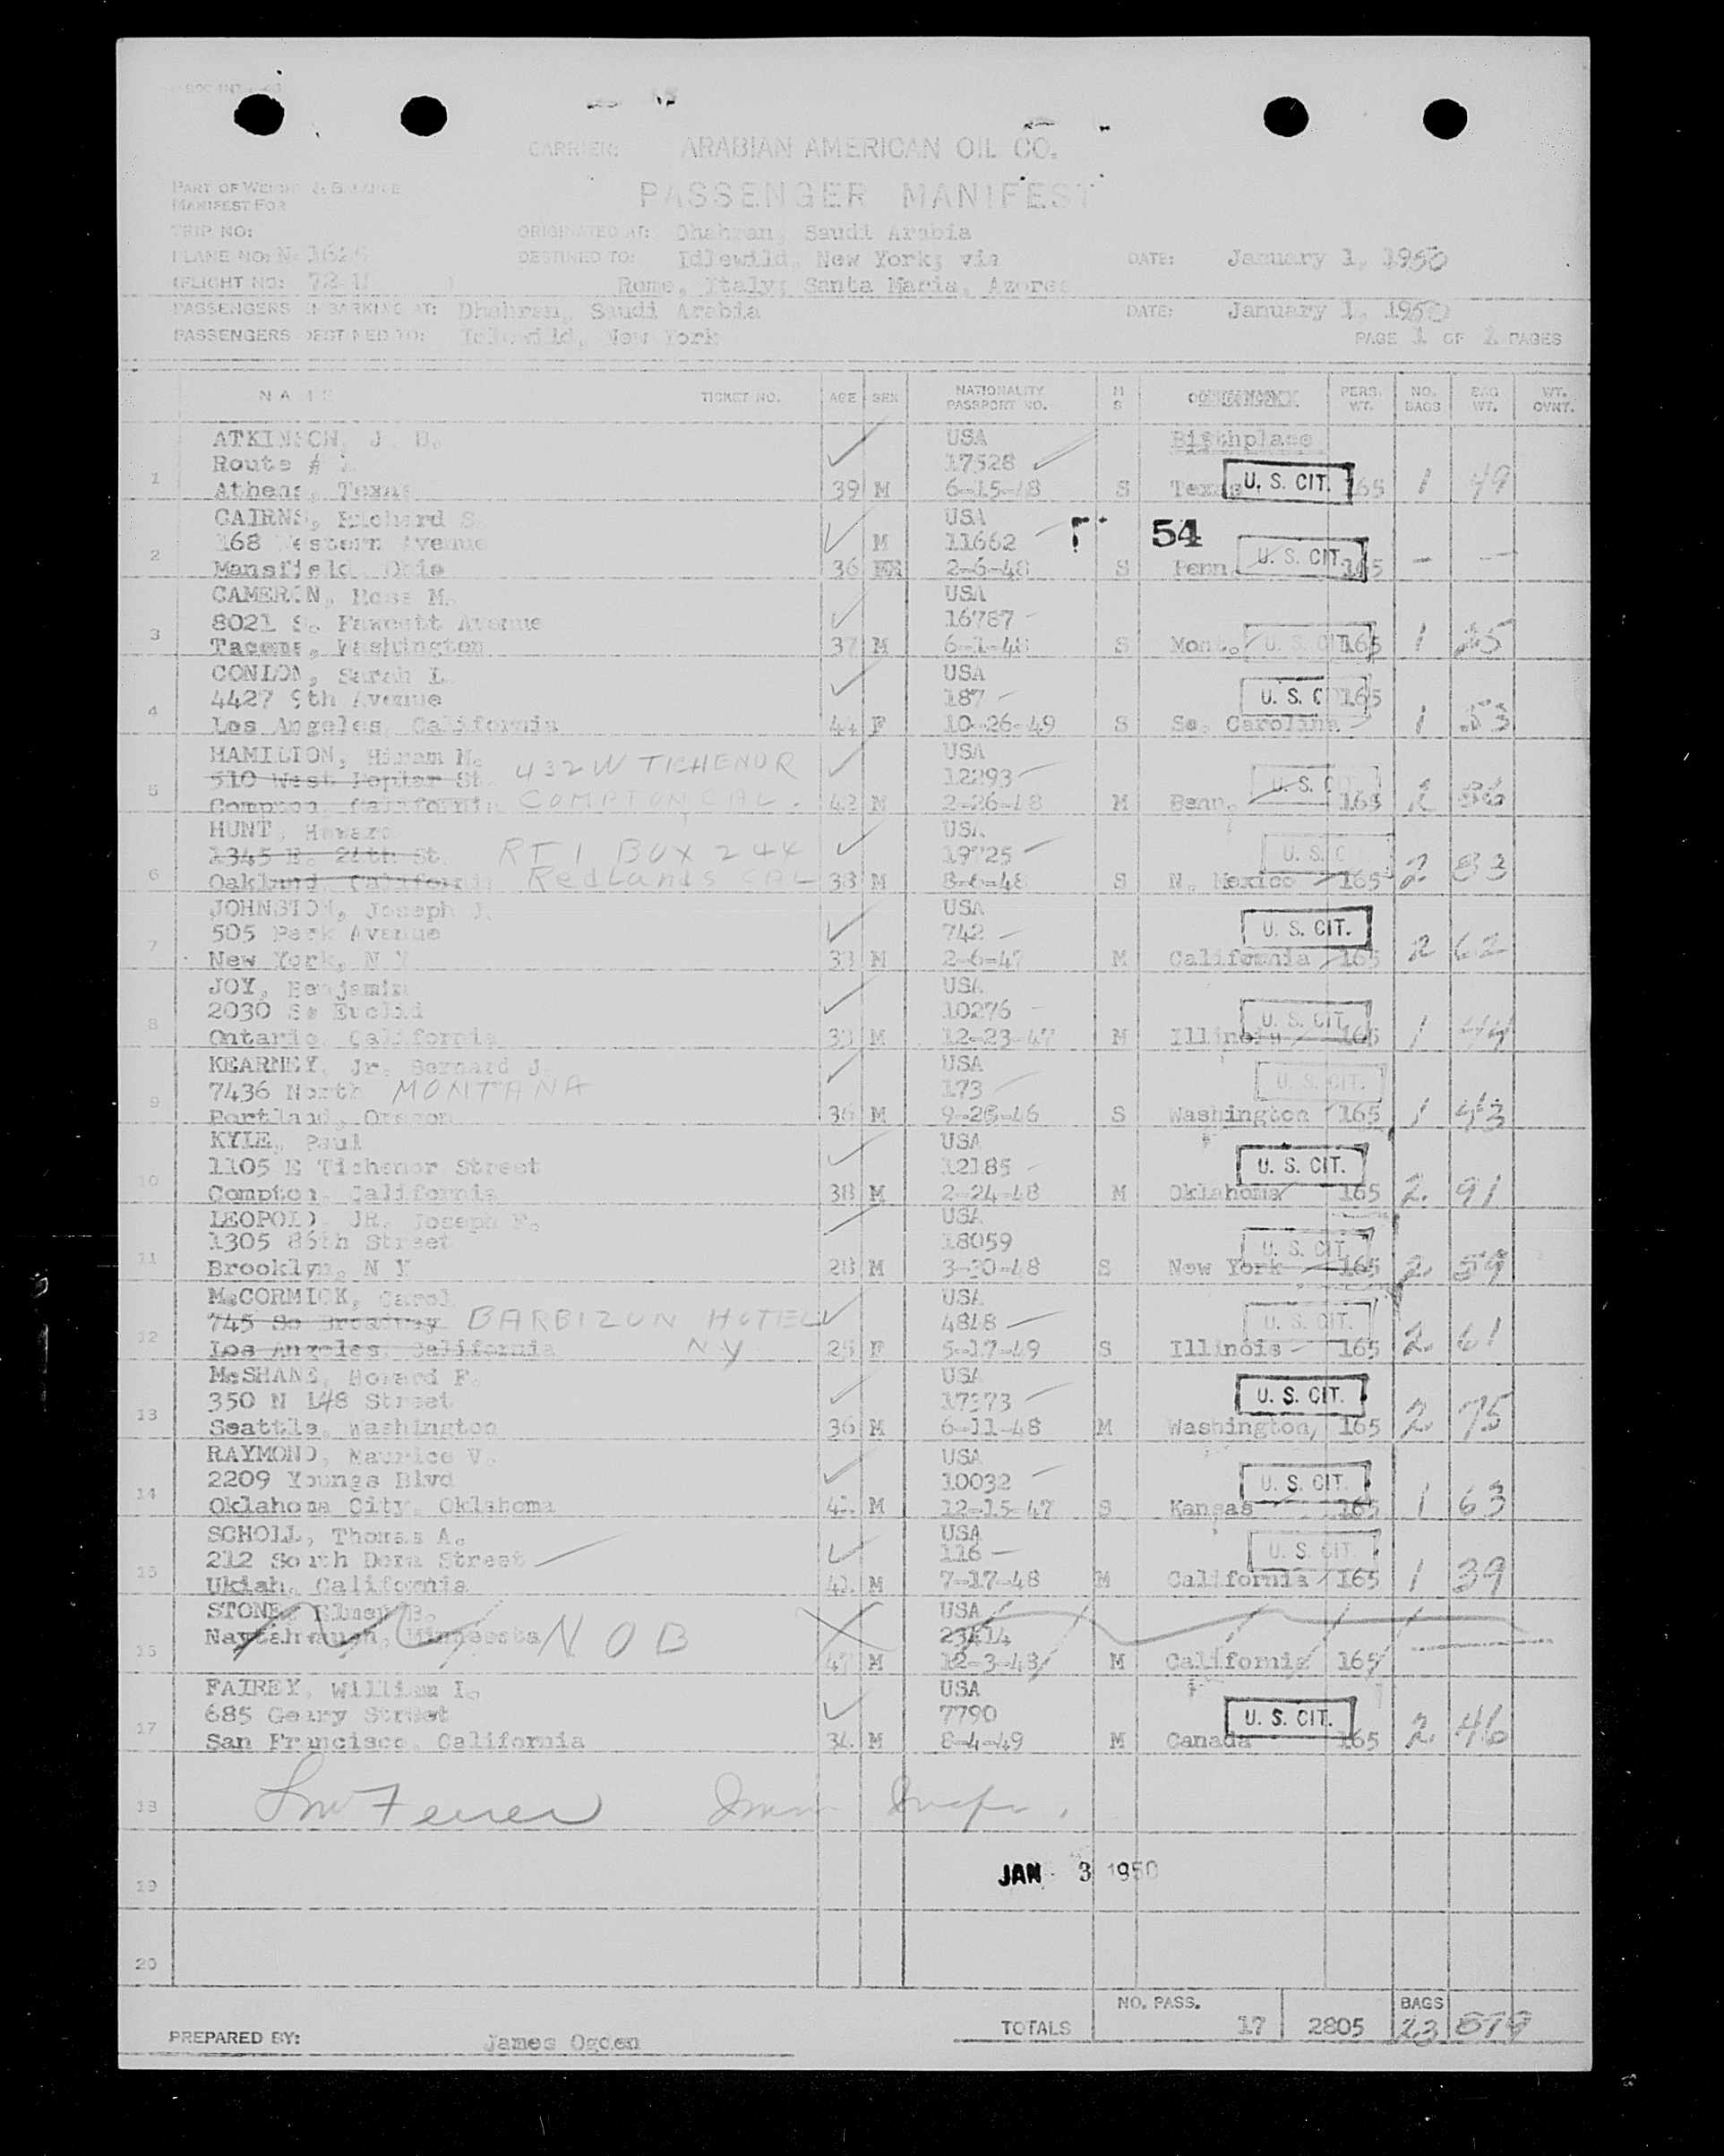 CARRIER: ARABIAN AMERICAN OIL CO.
PART OF WEIGHT & BALANCE
MANIFEST FOR
PASSENGER MANIFEST
TRIP NO: ORIGINATED AT: Dhahran, Saudi Arabia
PLANE NO: DESTINED TO: Idlewild, New York; via DATE: January 1, 1950
FLIGHT NO: Rome, Italy; Santa Maria, Azores
PASSENGERS EMBARKING AT: Dhahran, Saudi Arabia DATE: January 1, 1950
PASSENGERS DESTINED TO: Idlewild, New York PAGE 1 OF PAGES
NAME TICKET NO. AGE SEX NATIONALITY PASSPORT NO. M S PERS. WT. NO. BAGS BAG WT. WT. OVNT.
ATKINSON, J. USA Birthplace
Route # 17528
1 Athens, Texas 39 M 6-15-48 S Texas U. S. CIT. 165 1 49
CAIRNS, Richard S. USA
168 Western Avenue M 11662 54
2 Mansfield, Ohio 36 2-6-48 S Penn. U. S. CIT. 165 - -
CAMERON, Ross M. USA
8021 S. Fawcett Avenue 16787
3 Tacoma, Washington 37 M 6-1-48 S Mont. U. S. CIT. 165 1
CONLON, Sarah L. USA
4427 9th Avenue 187 U. S. C 165
4 Los Angeles, California 44 F 10-26-49 S So. Carolina 1 53
HAMILTON, Hiram N. 432 W TICHENOR USA
510 West Poplar St. 12293 U. S. C
5 Compton, California COMPTON CAL. 42 M 2-26-48 M Penn. 165 2 56
HUNT, Howard USA
1345 E. 24th St. RT 1 BOX 244 19725 U. S. C
6 Oakland, California Redlands CAL 38 M 8-6-48 S N. Mexico 165 2 83
JOHNSTON, Joseph J. USA
505 Park Avenue 742 U. S. CIT.
7 New York, N Y 33 M 2-6-47 M California 165 2 62
JOY, Benjamin USA
2030 So Euclid 10276 U. S. CIT.
8 Ontario, California 33 M 12-23-47 M Illinois 165 1 44
KEARNEY, Jr. Bernard J. USA
7436 North MONTANA 173 U. S. CIT.
9 Portland, Oregon 36 M 9-28-46 S Washington 165 1 43
KYLE, Paul USA
1105 E Tichenor Street 12185 U. S. CIT.
10 Compton, California 38 M 2-24-48 M Oklahoma 165 2 91
LEOPOLD, JR. Joseph F. USA
1305 86th Street 18059 U. S. CIT.
11 Brooklyn, N Y 28 M 3-30-48 S New York 165 2 59
McCORMICK, Carol USA
745 So Broadway BARBIZON HOTEL 4848 U. S. CIT.
12 Los Angeles, California NY 25 F 5-17-49 S Illinois 165 2 61
McSHANE, Howard F. USA
350 N 148 Street 17373 U. S. CIT.
13 Seattle, Washington 36 M 6-11-48 M Washington 165 2 75
RAYMOND, Maurice V. USA
2209 Youngs Blvd 10032 U. S. CIT.
14 Oklahoma City, Oklahoma M 12-15-47 S Kansas 165 1 63
SCHOLL, Thomas A. USA
212 South Dora Street 116 U. S. CIT
15 Ukiah, California M 7-17-48 M California 165 1 39
STONE, Elmer B. USA
Minnesota NOB 23414
16 47 M 12-3-48 M California 165
FAIREY, William I. USA
685 Geary Street 7790 U. S. CIT.
17 San Francisco, California M 8-4-49 M Canada 165 2 46
18
19 JAN 3 1950
20
NO. PASS. BAGS
TOTALS 17 2805 23 879
PREPARED BY: James Ogden